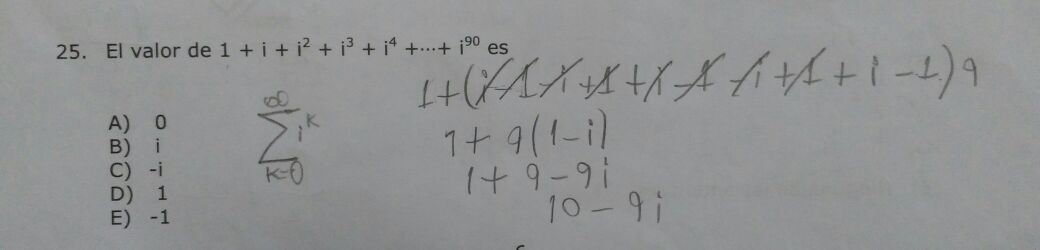 25. El valor de 1 + i + i² + i³ + i⁴ +···+ i⁹⁰ es
A) 0
B) i
C) -i
D) 1
E) -1
∞
∑ i^K
K=0
1+(i-1-i+1+i-1-i+1+i-1)9
1+ 9(1-i)
1+ 9-9i
10-9i